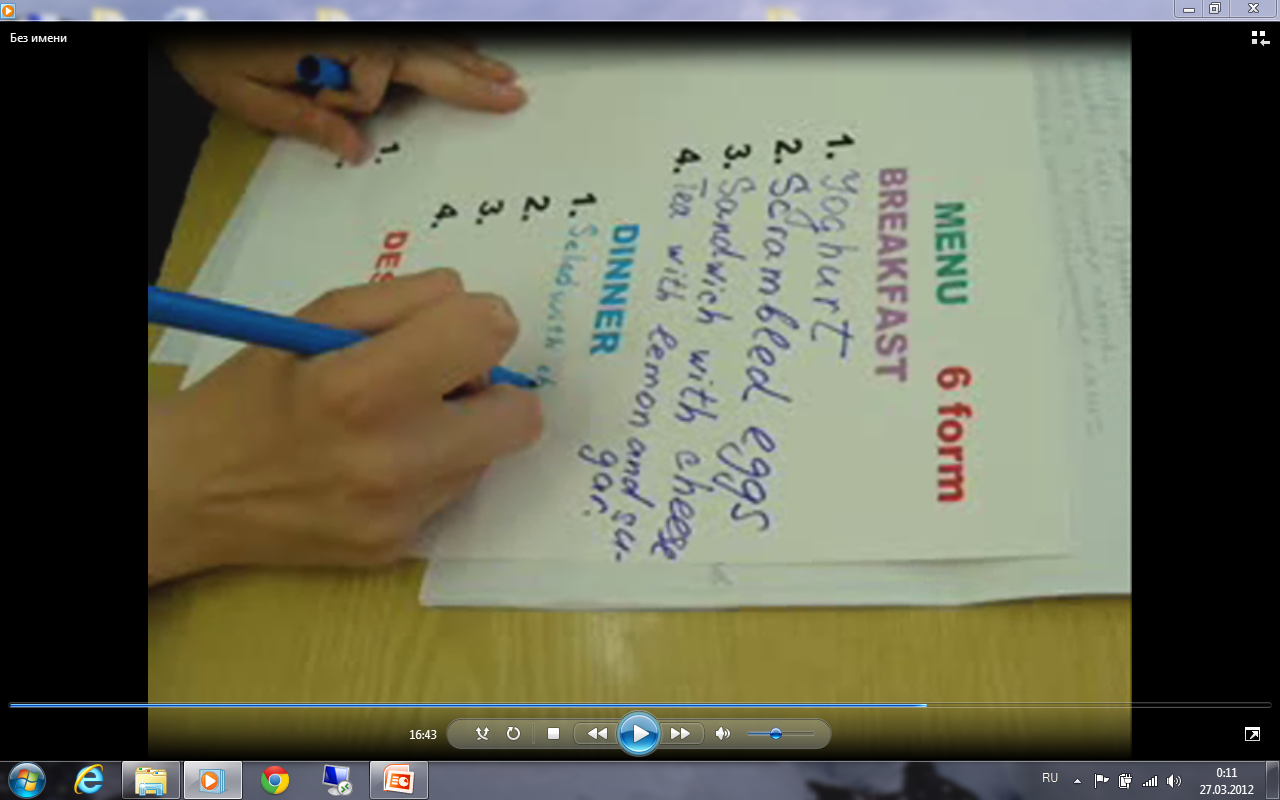 Без имени
MENU 6 form
BREAKFAST
1. Yoghurt
2. Scrambled eggs
3. Sandwich with cheese
4. Tea with lemon and su-
gar.
DINNER
1. Selad with ch
2.
3.
4.
DES
1.
16:43
RU
0:11
27.03.2012